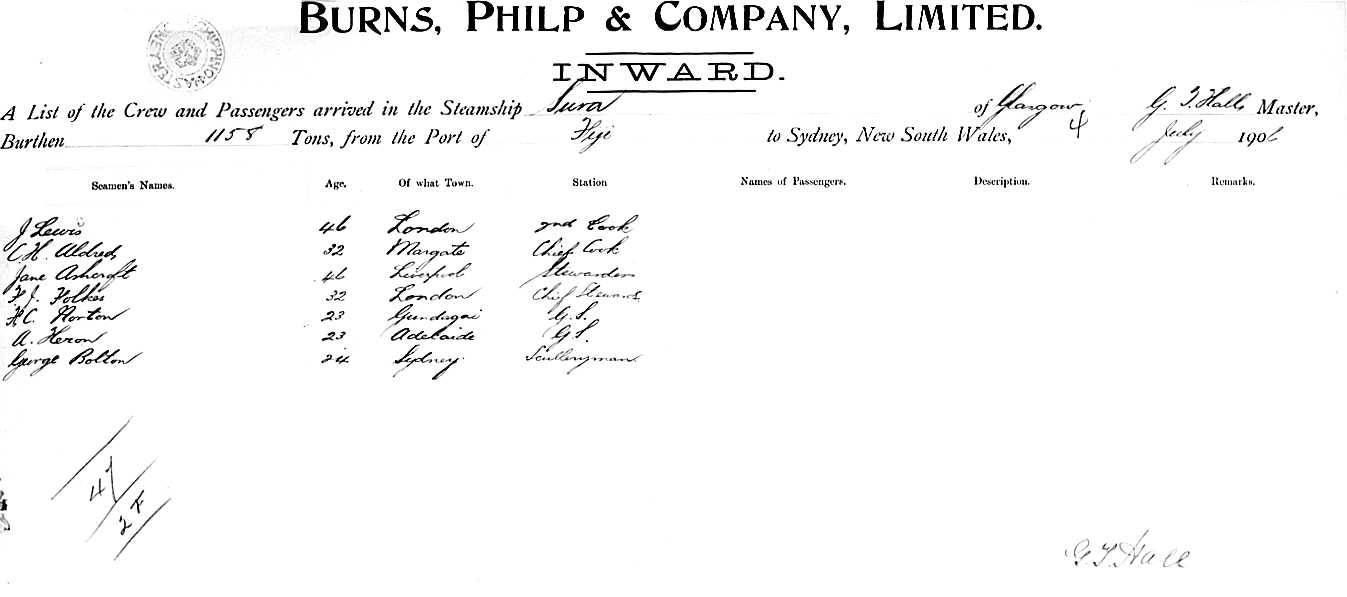 BURNS, PHILP & COMPANY, LIMITED.
INWARD.
A List of the Crew and Passengers arrived in the Steamship Sura of Glasgow G. T. Hall Master,
Burthen 1158 Tons, from the Port of Fiji to Sydney, New South Wales, 4 July 1906
Seamen's Names. Age. Of what Town. Station Names of Passengers. Description. Remarks.
J Lewis 46 London 2nd Cook
C.H. Aldred 32 Margate Chief Cook
Jane Ashcroft 46 Liverpool Stewardess
F. J. Folkes 32 London Chief Steward
H.C. Norton 23 Gundagai G.S.
A. Heron 23 Adelaide G.S.
George Bolton 24 Sydney Sculleryman
47
2 F
G T Hall